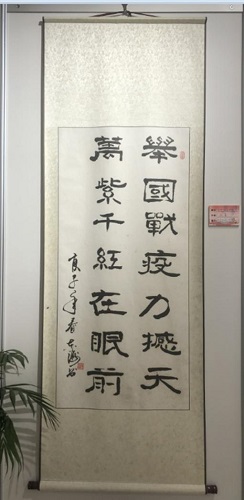 舉國戰疫力撼天
萬紫千紅在眼前
庚子年春